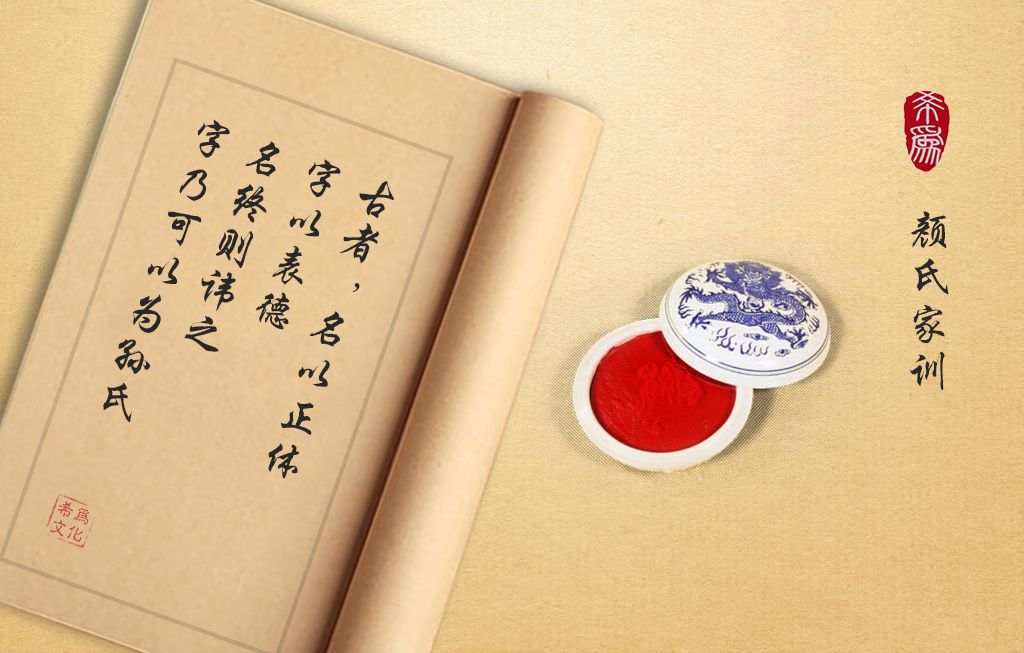 古者，名以正体
字以表德
名终则讳之
字乃可以为孙氏
希爲
文化
希爲
颜氏家训